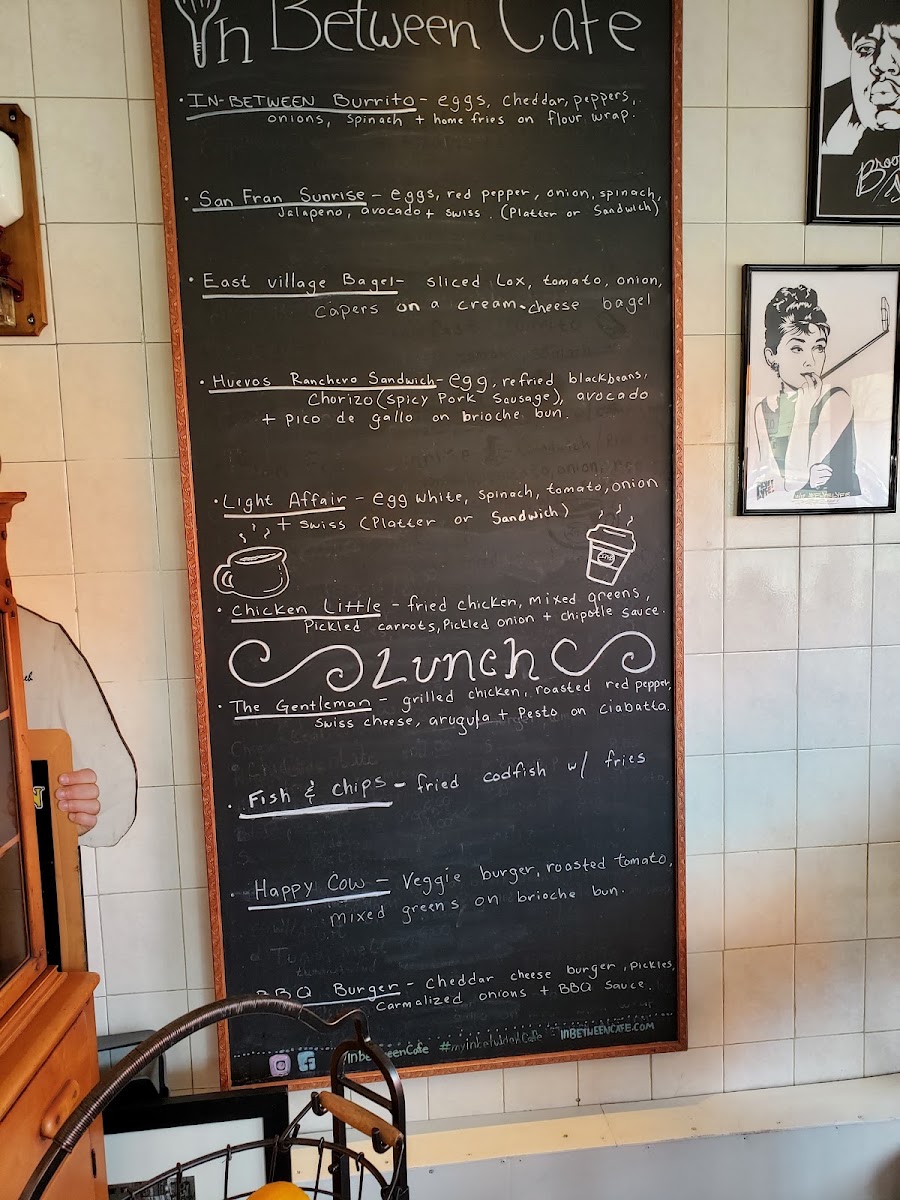 In Between Cafe
• IN-BETWEEN Burrito - eggs, cheddar, peppers,
onions, spinach + home fries on flour wrap.
• San Fran Sunrise - eggs, red pepper, onion, spinach,
Jalapeno, avocado + swiss. (Platter or Sandwich)
• East village Bagel - sliced Lox, tomato, onion,
capers on a cream-cheese bagel
• Huevos Ranchero Sandwich - egg, refried blackbeans,
Chorizo (spicy Pork Sausage), avocado
+ pico de gallo on brioche bun.
• Light Affair - egg white, spinach, tomato, onion
+ swiss (Platter or Sandwich)
• Chicken Little - fried chicken, mixed greens,
Pickled carrots, Pickled onion + chipotle sauce.
Lunch
• The Gentleman - grilled chicken, roasted red pepper,
Swiss cheese, arugula + Pesto on ciabatta.
• Fish & chips - fried codfish w/ fries
• Happy Cow - Veggie burger, roasted tomato,
mixed greens on brioche bun.
BBQ Burger - cheddar cheese burger, pickles,
carmalized onions + BBQ sauce.
/InbetweenCafe #myinbetweencafe INBETWEENCAFE.COM